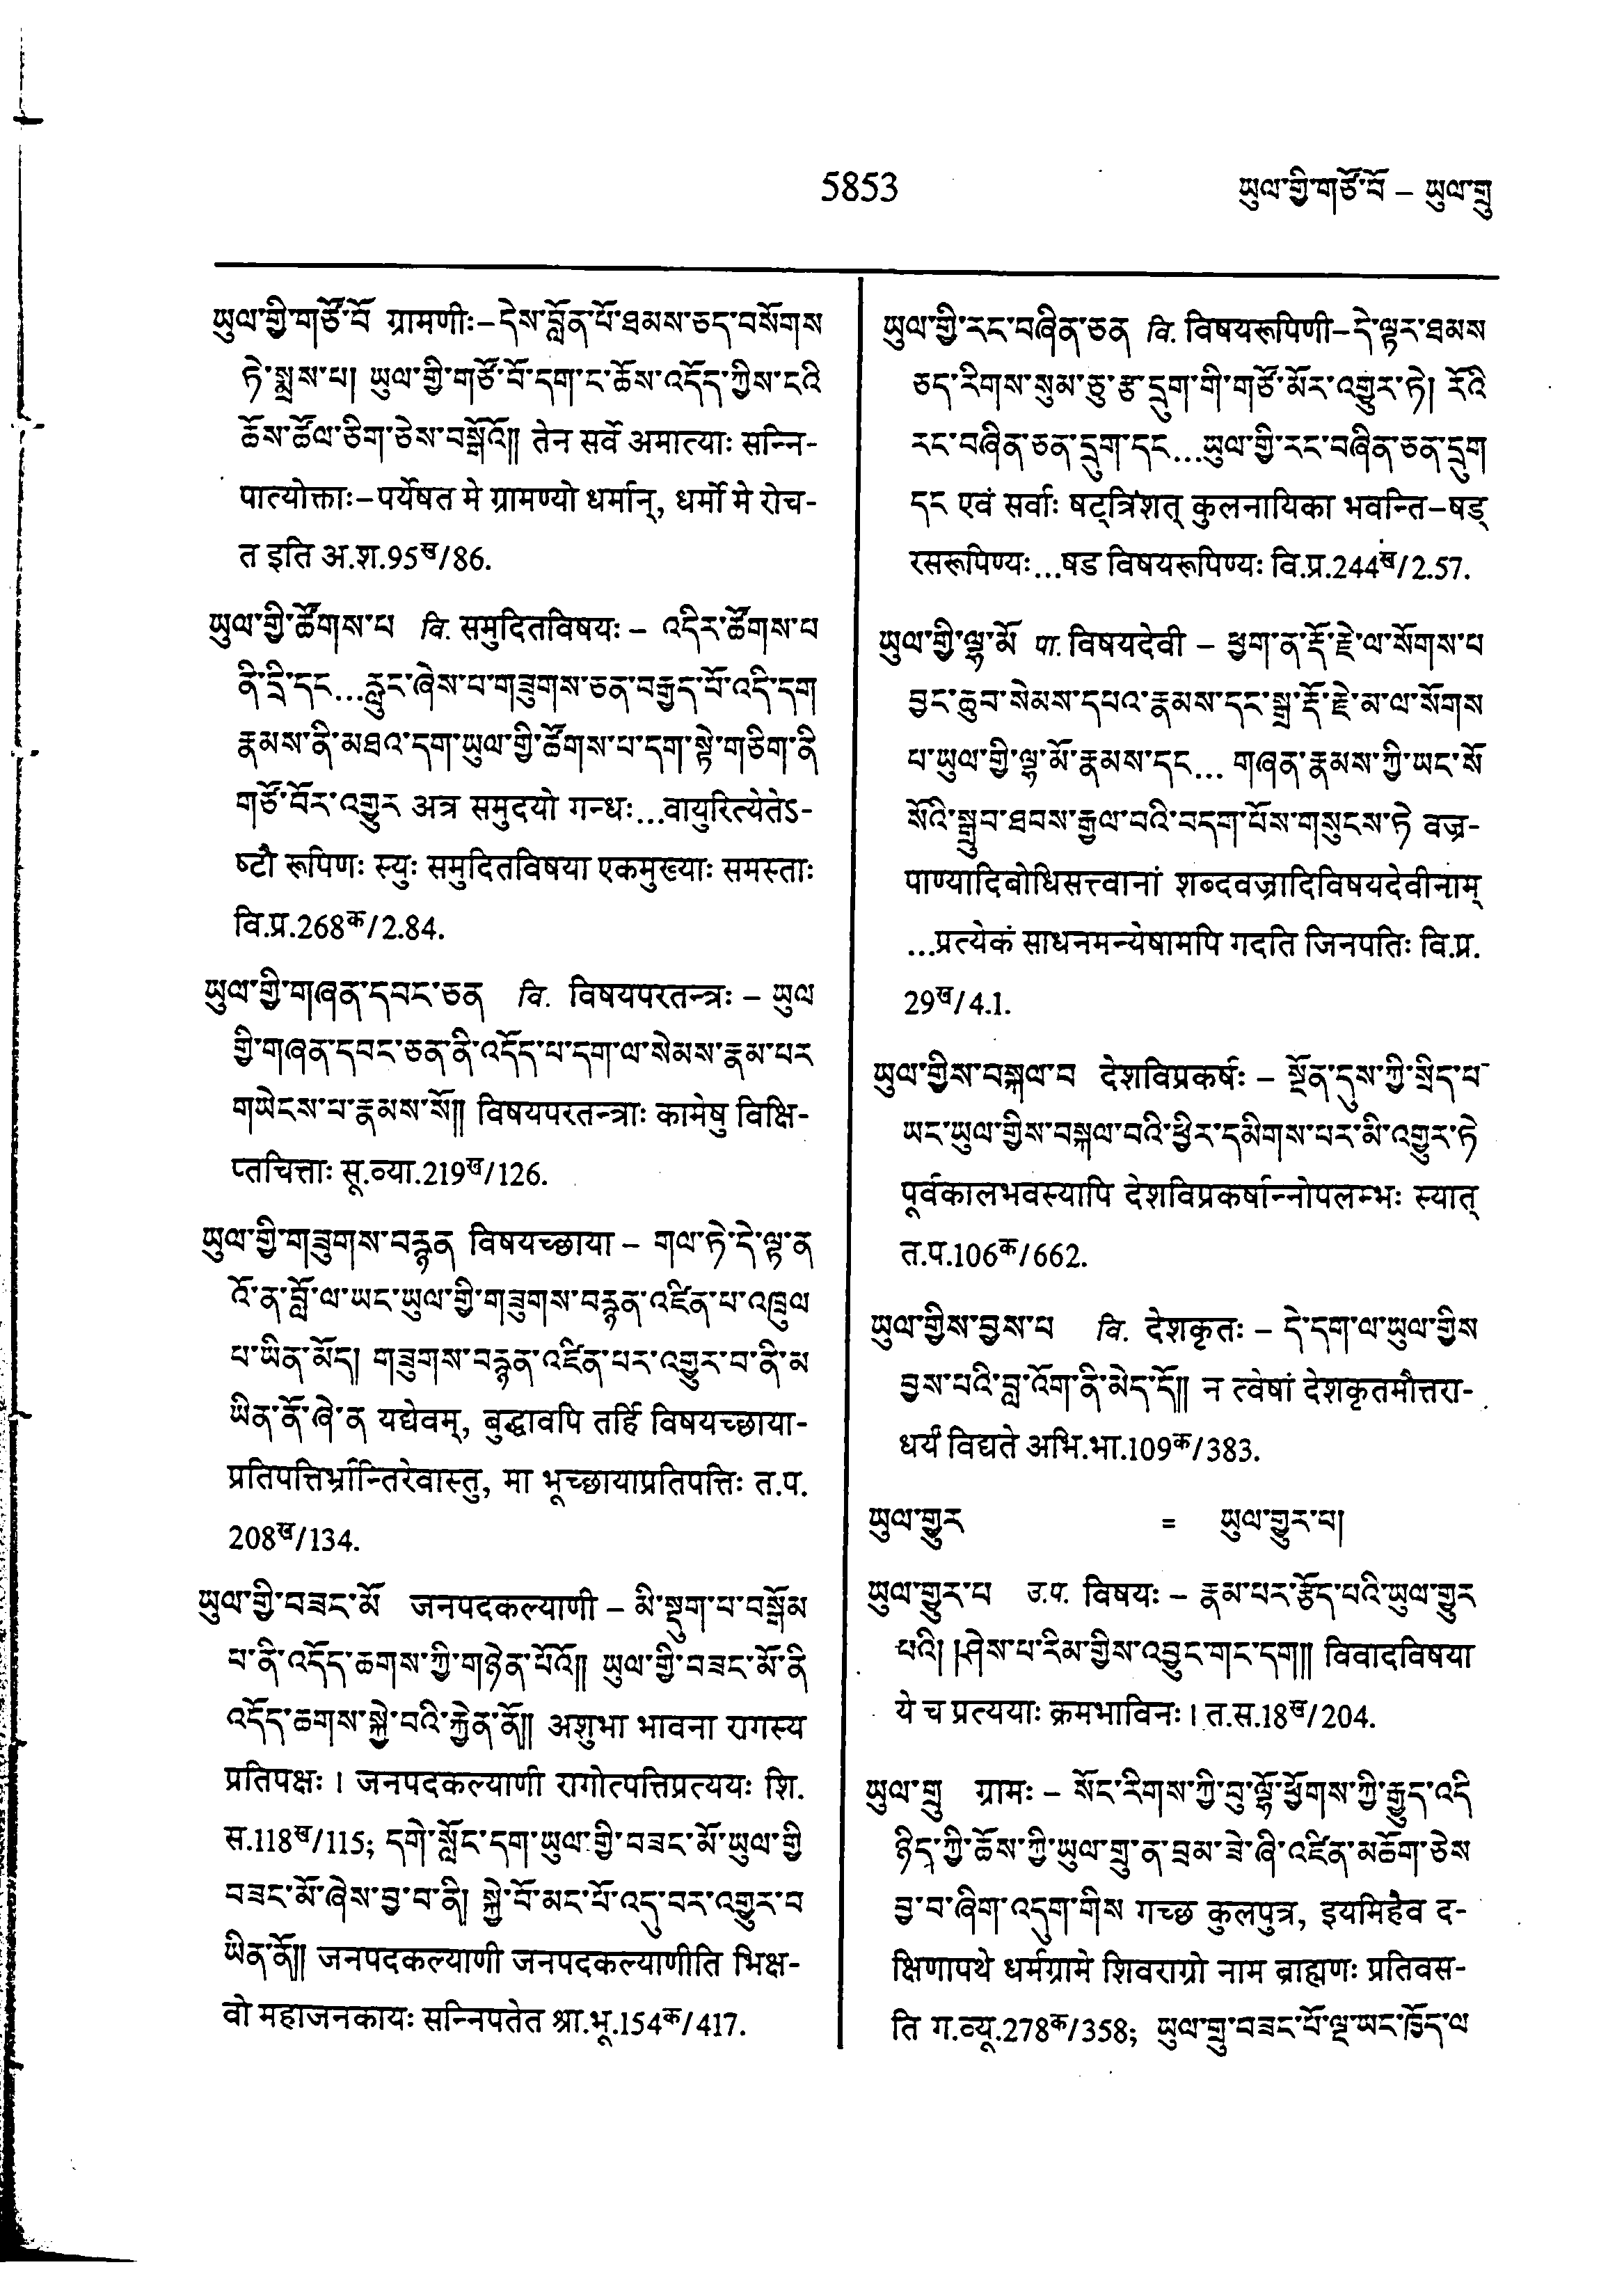 5853
ཡུལ་གྱི་གཙོ་བོ – ཡུལ་གྲུ
ཡུལ་གྱི་གཙོ་བོ ग्रामणीः–དེས་བློན་པོ་ཐམས་ཅད་བསོགས
ཏེ་སྨྲས་པ། ཡུལ་གྱི་གཙོ་བོ་དག་ང་ཆོས་འདོད་ཀྱིས་ངའི
ཆོས་ཚོལ་ཅིག་ཅེས་བསྒོའོ༎ तेन सर्वे अमात्याः सन्नि-
पात्योक्ताः–पर्येषत मे ग्रामण्यो धर्मान्, धर्मो मे रोच-
त इति अ.श.95ख/86.
ཡུལ་གྱི་ཚོགས་པ वि. समुदितविषयः – འདིར་ཚོགས་པ
ནི་དྲི་དང...རླུང་ཞེས་པ་གཟུགས་ཅན་བརྒྱད་པོ་འདི་དག
རྣམས་ནི་མཐའ་དག་ཡུལ་གྱི་ཚོགས་པ་དག་སྟེ་གཅིག་ནི
གཙོ་བོར་འགྱུར अत्र समुदयो गन्धः...वायुरित्येतेऽ-
ष्टौ रूपिणः स्युः समुदितविषया एकमुख्याः समस्ताः
वि.प्र.268क/2.84.
ཡུལ་གྱི་གཞན་དབང་ཅན वि. विषयपरतन्त्रः – ཡུལ
གྱི་གཞན་དབང་ཅན་ནི་འདོད་པ་དག་ལ་སེམས་རྣམ་པར
གཡེངས་པ་རྣམས་སོ༎ विषयपरतन्त्राः कामेषु विक्षि-
प्तचित्ताः सू.व्या.219ख/126.
ཡུལ་གྱི་གཟུགས་བརྙན विषयच्छाया – གལ་ཏེ་དེ་ལྟ་ན
འོ་ན་བློ་ལ་ཡང་ཡུལ་གྱི་གཟུགས་བརྙན་འཛིན་པ་འཁྲུལ
པ་ཡིན་མོད། གཟུགས་བརྙན་འཛིན་པར་འགྱུར་བ་ནི་མ
ཡིན་ནོ་ཞེ་ན यद्येवम्, बुद्धावपि तर्हि विषयच्छाया-
प्रतिपत्तिर्भ्रान्तिरेवास्तु, मा भूच्छायाप्रतिपत्तिः त.प.
208ख/134.
ཡུལ་གྱི་བཟང་མོ जनपदकल्याणी – མི་སྡུག་པ་བསྒོམ
པ་ནི་འདོད་ཆགས་ཀྱི་གཉེན་པོའོ༎ ཡུལ་གྱི་བཟང་མོ་ནི
འདོད་ཆགས་སྐྱེ་བའི་རྐྱེན་ནོ༎ अशुभा भावना रागस्य
प्रतिपक्षः । जनपदकल्याणी रागोत्पत्तिप्रत्ययः शि.
स.118ख/115; དགེ་སློང་དག་ཡུལ་གྱི་བཟང་མོ་ཡུལ་གྱི
བཟང་མོ་ཞེས་བྱ་བ་ནི། སྐྱེ་བོ་མང་པོ་འདུ་བར་འགྱུར་བ
ཡིན་ནོ༎ जनपदकल्याणी जनपदकल्याणीति भिक्ष-
वो महाजनकायः सन्निपतेत श्रा.भू.154क/417.
ཡུལ་གྱི་རང་བཞིན་ཅན वि. विषयरूपिणी–དེ་ལྟར་ཐམས
ཅད་རིགས་སུམ་ཅུ་རྩ་དྲུག་གི་གཙོ་མོར་འགྱུར་ཏེ། རོའི
རང་བཞིན་ཅན་དྲུག་དང...ཡུལ་གྱི་རང་བཞིན་ཅན་དྲུག
དང एवं सर्वाः षट्त्रिंशत् कुलनायिका भवन्ति–षड्
रसरूपिण्यः...षड विषयरूपिण्यः वि.प्र.244ख/2.57.
ཡུལ་གྱི་ལྷ་མོ पा. विषयदेवी – ཕྱག་ན་རྡོ་རྗེ་ལ་སོགས་པ
བྱང་ཆུབ་སེམས་དཔའ་རྣམས་དང་སྒྲ་རྡོ་རྗེ་མ་ལ་སོགས
པ་ཡུལ་གྱི་ལྷ་མོ་རྣམས་དང... གཞན་རྣམས་ཀྱི་ཡང་སོ
སོའི་སྒྲུབ་ཐབས་རྒྱལ་བའི་བདག་པོས་གསུངས་ཏེ वज्र-
पाण्यादिबोधिसत्त्वानां शब्दवज्रादिविषयदेवीनाम्
...प्रत्येकं साधनमन्येषामपि गदति जिनपतिः वि.प्र.
29ख/4.1.
ཡུལ་གྱིས་བསྐལ་བ देशविप्रकर्षः – སྔོན་དུས་ཀྱི་སྲིད་པ་
ཡང་ཡུལ་གྱིས་བསྐལ་བའི་ཕྱིར་དམིགས་པར་མི་འགྱུར་ཏེ
पूर्वकालभवस्यापि देशविप्रकर्षान्नोपलम्भः स्यात्
त.प.106क/662.
ཡུལ་གྱིས་བྱས་པ वि. देशकृतः – དེ་དག་ལ་ཡུལ་གྱིས
བྱས་པའི་བླ་འོག་ནི་མེད་དོ༎ न त्वेषां देशकृतमौत्तरा-
धर्यं विद्यते अभि.भा.109क/383.
ཡུལ་གྱུར = ཡུལ་གྱུར་པ།
ཡུལ་གྱུར་པ उ.प. विषयः – རྣམ་པར་རྩོད་པའི་ཡུལ་གྱུར
པའི། །ཤེས་པ་རིམ་གྱིས་འབྱུང་གང་དག༎ विवादविषया
ये च प्रत्ययाः क्रमभाविनः । त.स.18ख/204.
ཡུལ་གྲུ ग्रामः – སོང་རིགས་ཀྱི་བུ་ལྷོ་ཕྱོགས་ཀྱི་རྒྱུད་འདི
ཉིད་ཀྱི་ཆོས་ཀྱི་ཡུལ་གྲུ་ན་བྲམ་ཟེ་ཞི་འཛིན་མཆོག་ཅེས
བྱ་བ་ཞིག་འདུག་གིས गच्छ कुलपुत्र, इयमिहैव द-
क्षिणापथे धर्मग्रामे शिवराग्रो नाम ब्राह्मणः प्रतिवस-
ति ग.व्यू.278क/358; ཡུལ་གྲུ་བཟང་པོ་ལྔ་ཡང་ཁྱོད་ལ